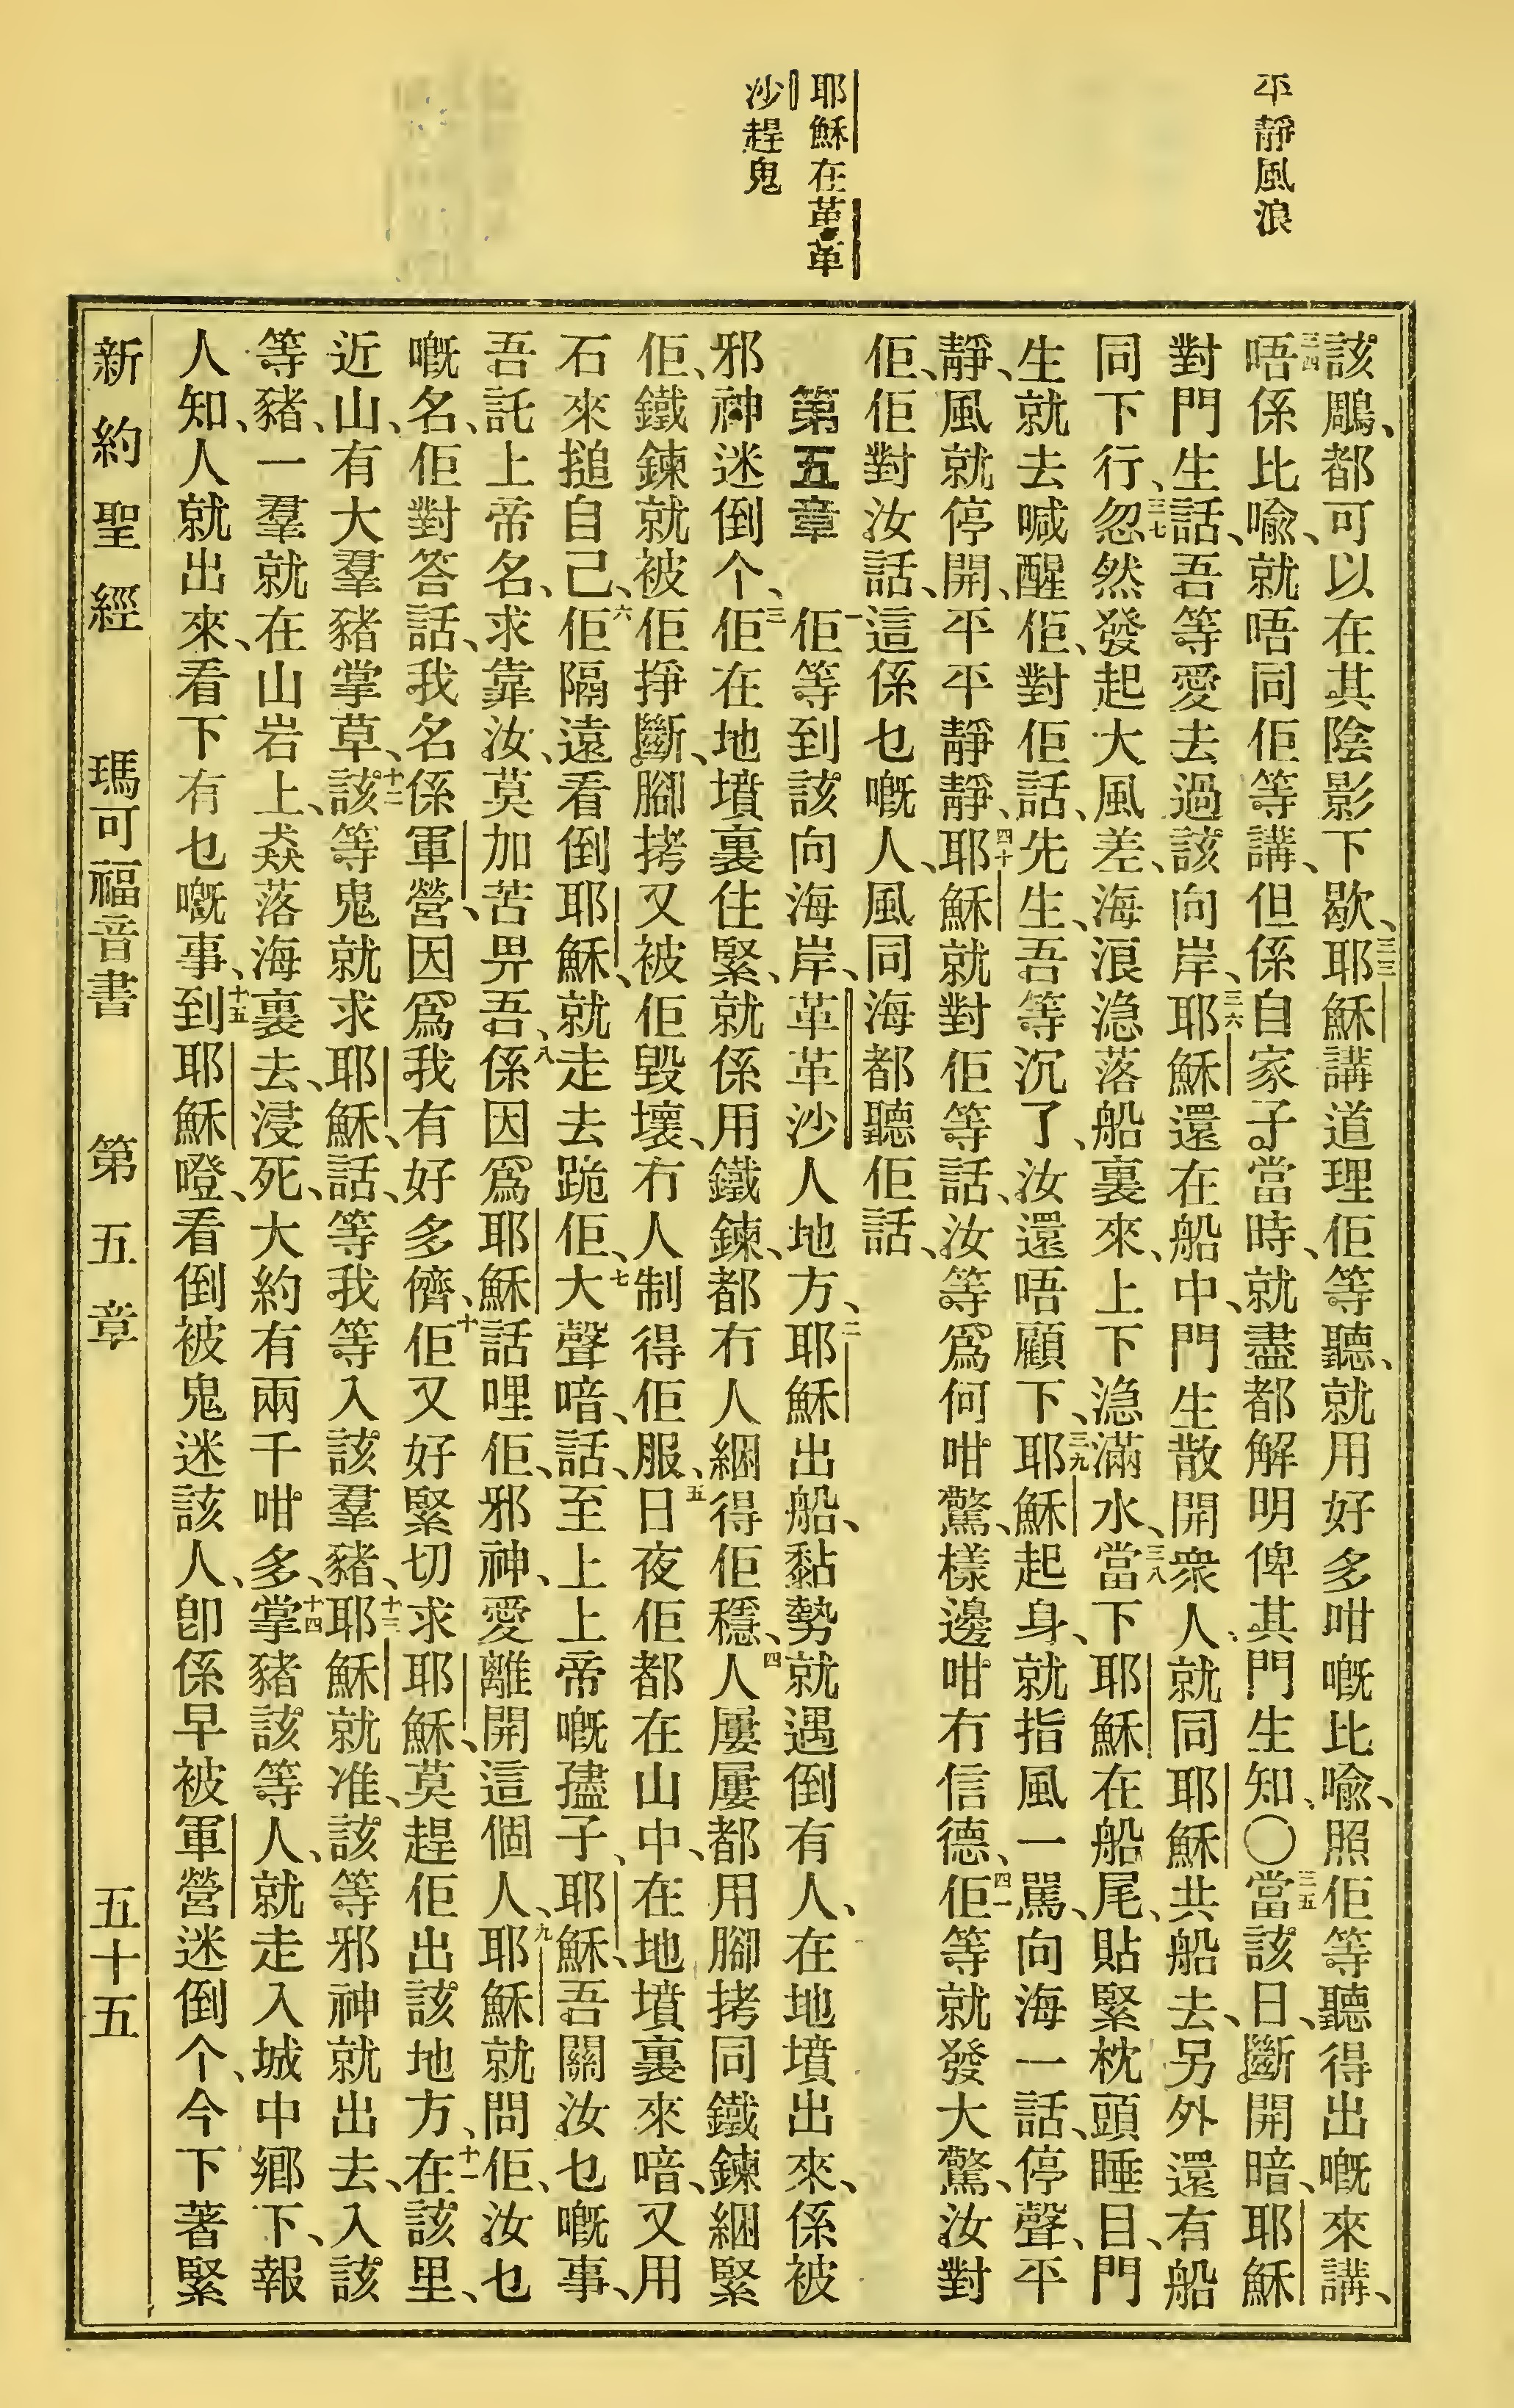 平靜風浪
耶穌在革革
沙趕鬼
該鵰、都可以在其陰影下歇、三三耶穌講道理佢等聽、就用好多咁嘅比喻、照佢等聽得出嘅來講、
三四唔係比喻、就唔同佢等講、但係自家子當時、就盡都解明俾其門生知、〇三五當該日、斷開暗、耶穌
對門生話、吾等愛去過該向岸、三六耶穌還在船中、門生散開衆人、就同耶穌共船去、另外還有船
同下行、三七忽然發起大風差、海浪急落船裏來、上下急滿水、三八當下耶穌在船尾、貼緊枕頭睡目、門
生就去喊醒佢、對佢話、先生、吾等沉了、汝還唔顧下、三九耶穌起身、就指風一駡、向海一話、停聲、平
靜、風就停開、平平靜靜、四十耶穌就對佢等話、汝等爲何咁驚、樣邊咁冇信德、四一佢等就發大驚、汝對
佢、佢對汝話、這係乜嘅人、風同海都聽佢話、
第五章 一佢等到該向海岸、革革沙人地方、二耶穌出船、黏勢就遇倒有人、在地墳出來、係被
邪神迷倒个、三佢在地墳裏住緊、就係用鐵鍊、都冇人綑得佢穩、四人屢屢都用腳拷同鐵鍊綑緊
佢、鐵鍊就被佢掙斷、腳拷又被佢毀壞、冇人制得佢服、五日夜佢都在山中、在地墳裏來喑、又用
石來搥自己、六佢隔遠看倒耶穌、就走去跪佢、七大聲喑、話、至上上帝嘅孻子、耶穌、吾關汝乜嘅事、
吾託上帝名、求靠汝、莫加苦畀吾、八係因爲耶穌話哩佢、邪神、愛離開這個人、九耶穌就問佢、汝乜
嘅名、佢對答話、我名係軍營、因爲我有好多儕、十佢又好緊切求耶穌、莫趕佢出該地方、十一在該里、
近山、有大羣豬掌草、十二該等鬼就求耶穌、話、等我等入該羣豬、十三耶穌就准、該等邪神就出去、入該
等豬、一羣就在山岩上、猋落海裏去、浸死、大約有兩千咁多、十四掌豬該等人、就走入城中鄉下、報
人知、人就出來、看下有乜嘅事、十五到耶穌嶝、看倒被鬼迷該人、卽係早被軍營迷倒个、今下著緊
新約聖經 瑪可福音書 第五章 五十五